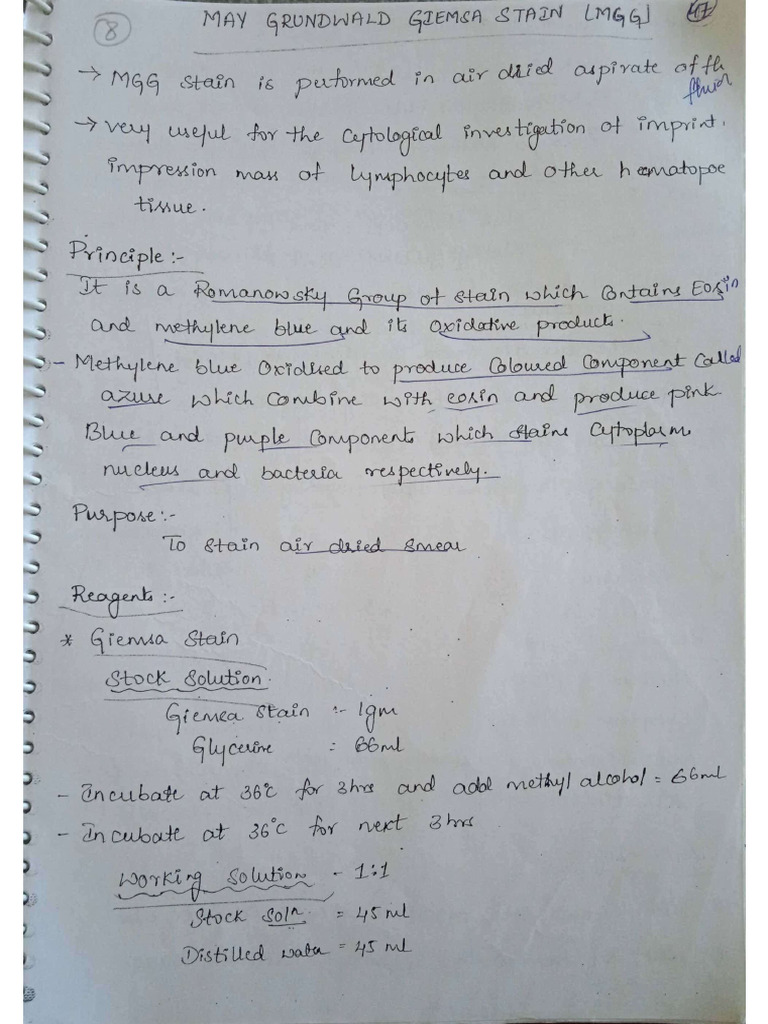 8
MAY GRUNDWALD GIEMSA STAIN [MGG]
17
→ MGG stain is performed in air dried aspirate of th
fluid
→ very useful for the Cytological investigation of imprint.
impression mass of lymphocytes and other hematopoe
tissue.
Principle :-
It is a Romanowsky Group of stain which Contains Eosin
and methylene blue and its oxidative products.
- Methylene blue Oxidised to produce Coloured Component Called
azure which combine with eosin and produce pink
Blue and purple Components which stains Cytoplasm
nucleus and bacteria respectively.
Purpose:-
To stain air dried smear
Reagents :-
* Giemsa Stain
Stock Solution.
Giemsa stain :- 1gm
Glycerine : 66ml
- Incubate at 36°c for 3hrs and add methyl alcohol = 66ml
- Incubate at 36°c for next 3hrs
Working Solution - 1:1
Stock Soln. = 45 ml
Distilled water = 45 ml